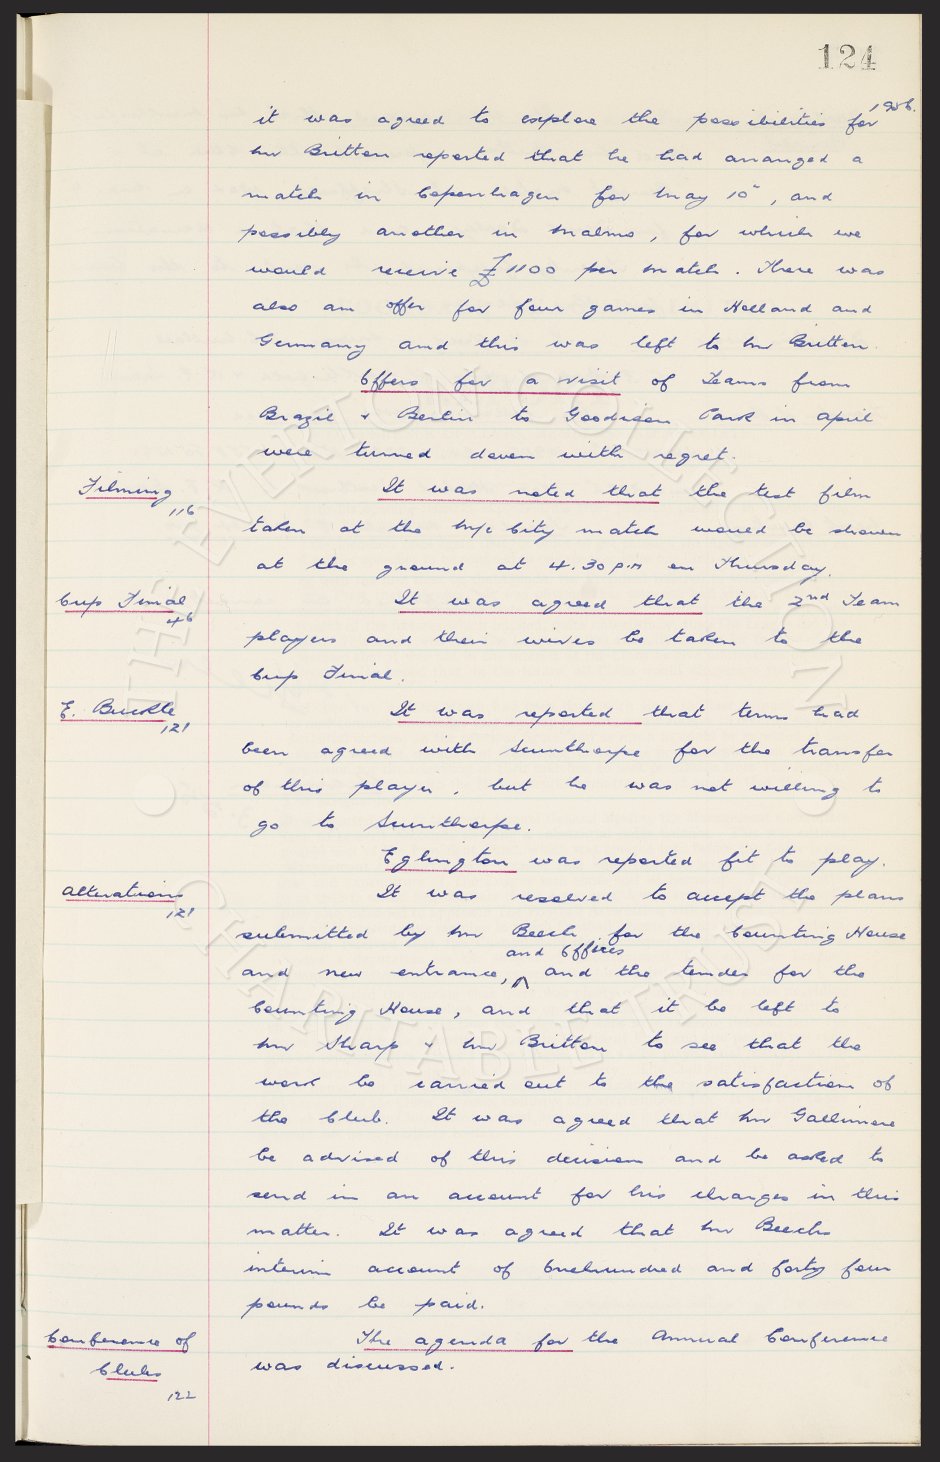 124
it was agreed to explore the possibilities for 1956.
Mr Britton reported that he had arranged a
match in Copenhagen for May 10", and
possibly another in Malmo, for which we
would receive £1100 per match. There was
also an offer for four games in Holland and
Germany and this was left to Mr Britton.
Offers for a visit of Teams from
Brazil & Berlin to Goodison Park in April
were turned down with regret.
Filming 116
It was noted that the test film
taken at the M/c City match would be shown
at the ground at 4.30 P.M on Thursday.
Cup Final 46
It was agreed that the 2nd Team
players and their wives be taken to the
Cup Final.
E. Buckle 121
It was reported that terms had
been agreed with Scunthorpe for the transfer
of this player, but he was not willing to
go to Scunthorpe.
Eglington was reported fit to play.
Alterations 121
It was resolved to accept the plans
submitted by Mr Beech for the Counting House
and Offices
and new entrance, ^ and the tender for the
Counting House, and that it be left to
Mr Sharp & Mr Britton to see that the
work be carried out to the satisfaction of
the Club. It was agreed that Mr Gallimore
be advised of this decision and be asked to
send in an account for his charges in this
matter. It was agreed that Mr Beechs
interim account of Onehundred and forty four
pounds be paid.
Conference of
Clubs
122
The agenda for the Annual Conference
was discussed.
THE EVERTON COLLECTION
CHARITABLE TRUST